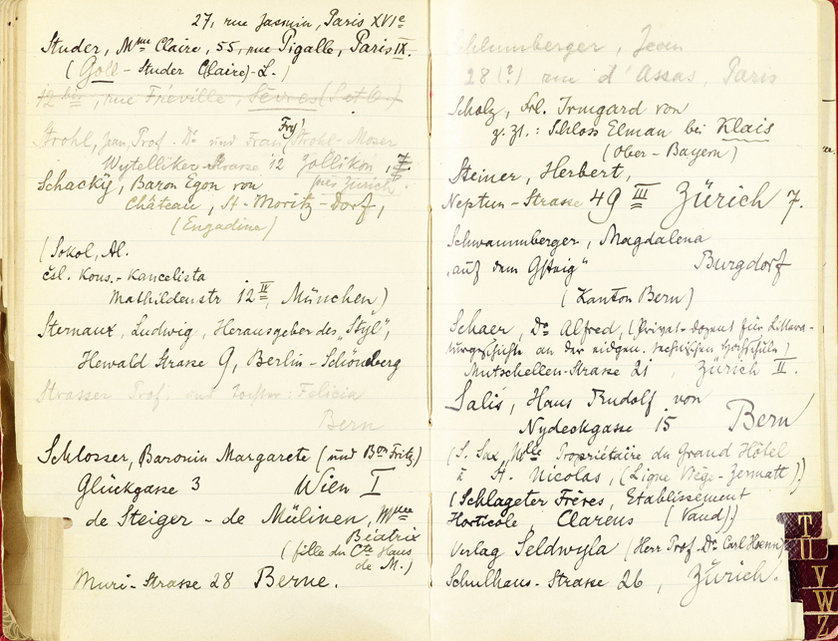 27, rue Jasmin, Paris XVIe
Studer, Mme Claire, 55, rue Pigalle, Paris IX.
(Goll - Studer Claire)-L.)
12 bis, rue Fréville, Sèvres (S et O.)
Strohl, Jean, Prof. Dr. und Frau Fry! Strohl-Moser
Wytelliker-Strasse 12 Zollikon,
près Zürich.
Schacky, Baron Egon von
Château, St-Moritz-Dorf,
(Engadine)
(Sokol, Al.
čsl. Kons.-Kancelista
Mathildenstr 12 II, München)
Sternaux, Ludwig, Herausgeber des „Styl",
Hewald Strasse 9, Berlin-Schöneberg
Strasser Prof. und Tochter: Felicia
Bern
Schlosser, Baronin Margarete (und Bon Fritz)
Glückgasse 3 Wien I
de Steiger - de Mülinen, Mme
Béatrix
(fille du Cte Hans
de M.)
Muri-Strasse 28 Berne.
Schlumberger, Jean
28(?) rue d'Assas, Paris
Scholz, Frl. Irmgard von
z. Zt.: Schloss Elmau bei Klais
(Ober-Bayern)
Steiner, Herbert,
Neptun-Strasse 49 III Zürich 7.
Schwammberger, Magdalena
„auf dem Gsteig" Burgdorf
(Kanton Bern)
Schaer, Dr. Alfred, (Privat-Dozent für Littera-
turgeschichte an der eidgen. technischen Hochschule)
Mutschellen-Strasse 21, Zürich II.
Salis, Hans Rudolf von
Nydeckgasse 15 Bern
(S. Sax, Mlle Propriétaire du Grand Hôtel
à St. Nicolas, (Ligne Viège-Zermatt))
(Schlageter Frères, Etablissement
Horticole, Clarens (Vaud))
Verlag Seldwyla (Herr Prof. Dr. Carl Hoenn)
Schulhaus-Strasse 26, Zürich.
T
U
V
W
Z